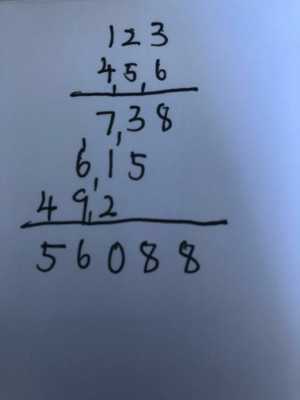 123
4,5,6
7,38
6,15
49,2
56088